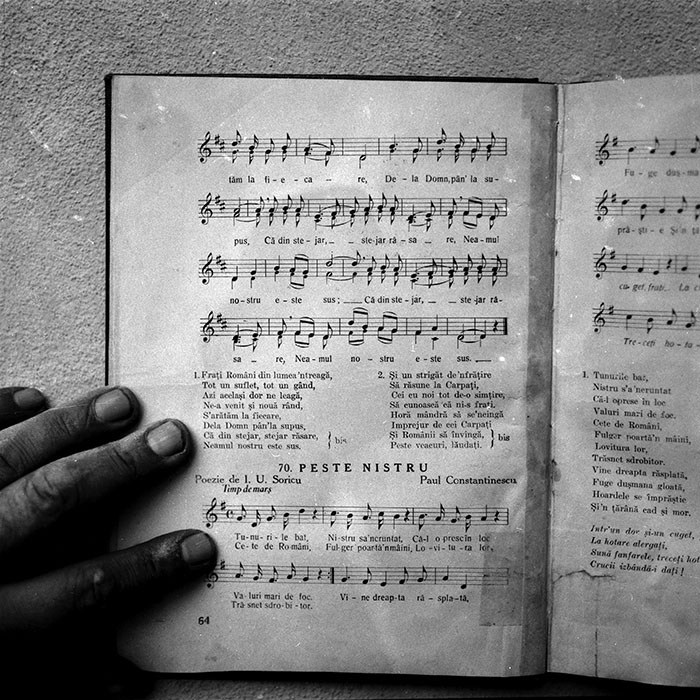 tăm la fie - ca - re, De - la Domn, pân' la su -
pus, Că din ste - jar, ste - jar ră - sa - re, Nea - mul
no - stru e - ste sus; Că din ste - jar, ste - jar ră -
sa - re, Nea - mul no - stru e - ste sus.
1. Frați Români din lumea'ntreagă,
Tot un suflet, tot un gând,
Azi același dor ne leagă,
Ne-a venit și nouă rând,
S'arătăm la fiecare,
Dela Domn pân'la supus,
Că din stejar, stejar răsare,
Neamul nostru este sus.
bis
2. Și un strigăt de'nfrățire
Să răsune la Carpați,
Cei cu noi tot de-o simțire,
Să cunoască că ni-s frați,
Horă mândră să se'neingă
Imprejur de cei Carpați
Și Românii să învingă,
Peste veacuri, lăudați.
bis
70. PESTE NISTRU
Poezie de I. U. Soricu
Paul Constantinescu
Timp de marș
Tu - nu - ri - le bat, Ni - stru sa'ncruntat, Că-l o presc în loc
Ce - te de Ro - mâni, Ful - ger poartă'n mâini, Lo - vi - tu - ra lor,
Va - luri mari de foc. Vi - ne dreap - ta ră - spla - tă,
Tră snet sdro - bi - tor.
64
Fu - ge duș - ma
pră - ști - e Și'n tă
cu - get, frați. La
Tre - ceți ho - ta -
1. Tunurile bat,
Nistru s'a'neruntat
Că-l oprese în loc
Valuri mari de foc.
Cete de Români,
Fulger poartă'n mâini,
Lovitura lor,
Trăsnet sdrobitor.
Vine dreapta răsplată,
Fuge dușmana gloată,
Hoardele se împrăștie
Și'n țărână cad și mor.
Intr'un dor și-un cuget,
La hotare alergați,
Sună fanfarele, treceți hot
Crucii izbândă-i dați!